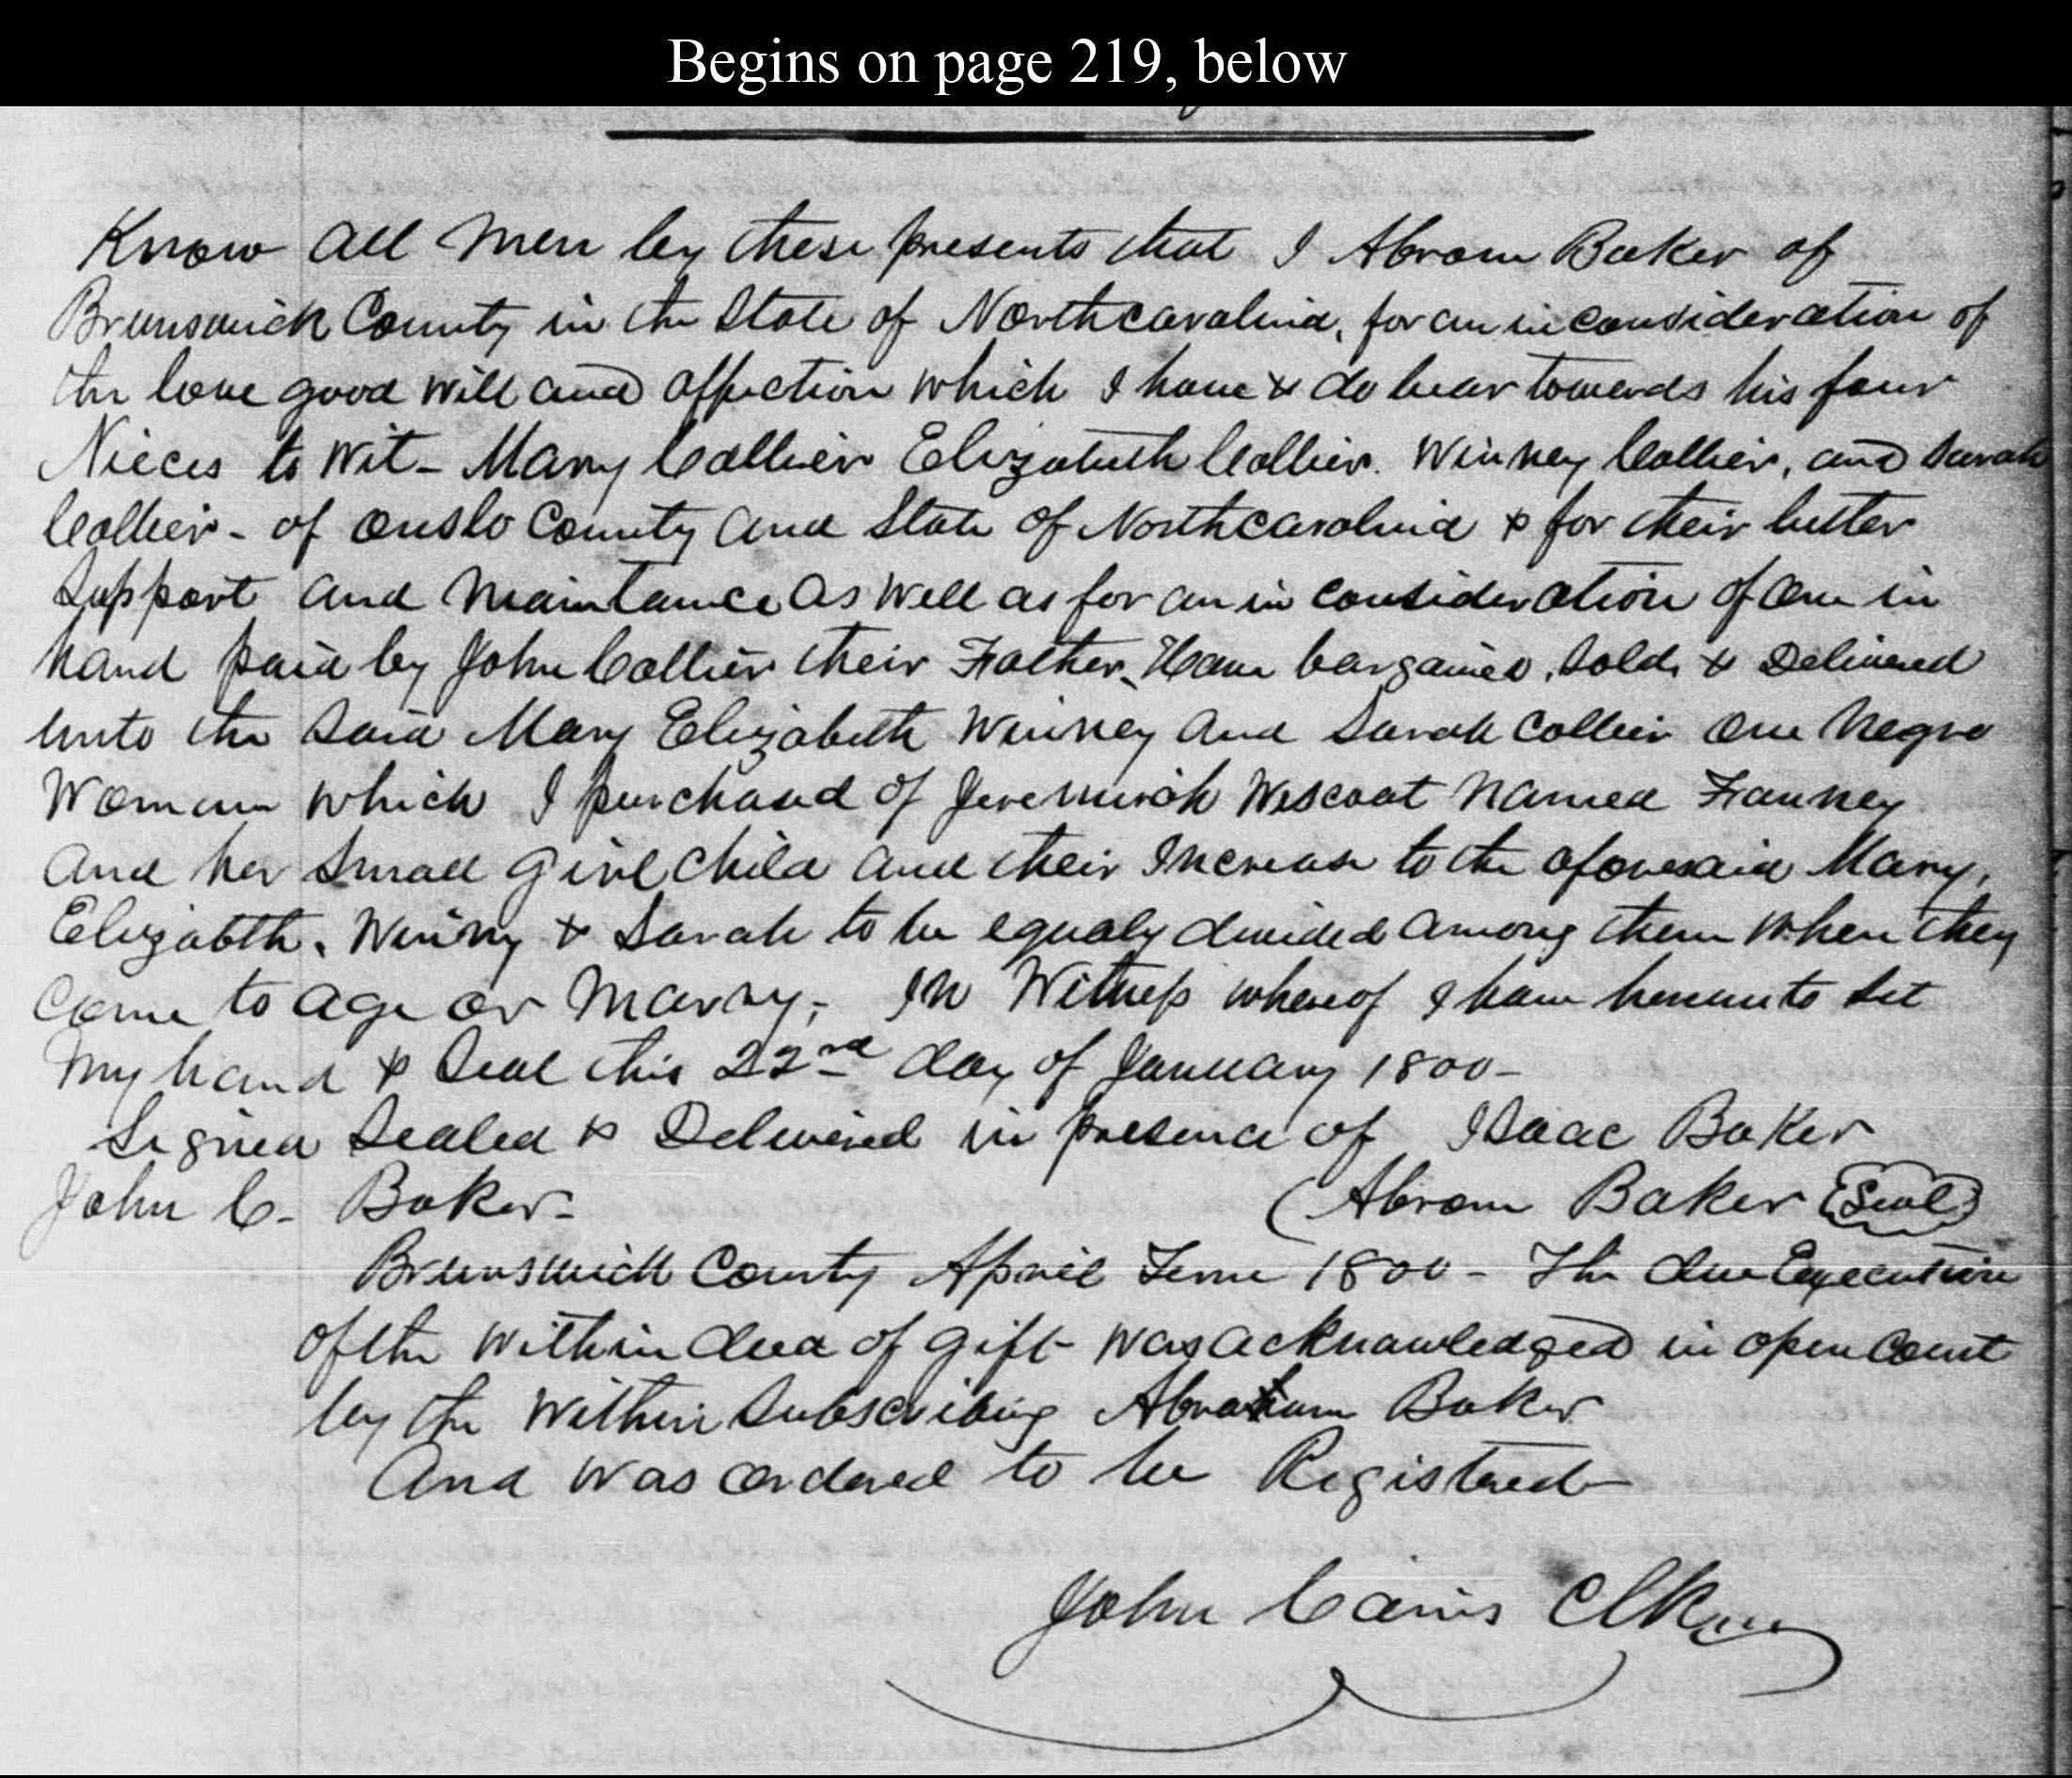 Begins on page 219, below
Know all Men by these presents that I Abram Baker of
Brunswick County in the State of Northcarolina, for an in consideration of
the love good will and affection which I have & do bear towards his four
Nieces to wit - Mary Collier Elizabeth Collier. Winney Collier, and Sarah
Collier - of Onslo County and State of Northcarolina & for their better
Support and Maintance as well as for an in consideration of one in
hand paid by John Collier their Father, Have bargained, Sold, & Delivered
unto the Said Mary Elizabeth Winney and Sarah Collier one Negro
Woman which I purchased of Jeremiah Wescoat Named Franney
and her Small girl child and their Increase to the aforesaid Mary,
Elizabth, Winny & Sarah to be equaly divided among them when they
Come to age or Marry, In Witness whereof I have hereunto Set
my hand & Seal this 22nd day of January 1800 -
Signed Sealed & Delivered in presence of Isaac Baker
John C. Baker - (Abram Baker (Seal)
Brunswick County April Term 1800 - The due Execution
of the within deed of gift was acknowledged in open Court
by the within Subscribing Abraham Baker
And was ordered to be Registred
John Cains Clk